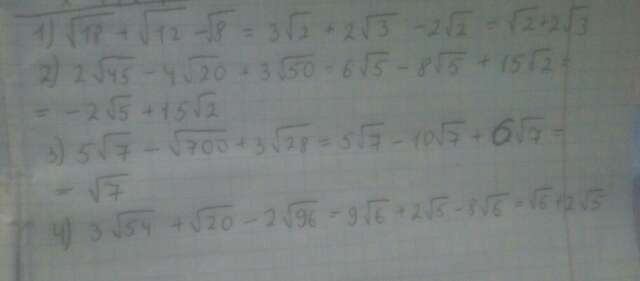 1) √18 + √12 - √8 = 3√2 + 2√3 - 2√2 = √2+2√3
2) 2√45 - 4√20 + 3√50 = 6√5 - 8√5 + 15√2 =
= -2√5 + 15√2
3) 5√7 - √700 + 3√28 = 5√7 - 10√7 + 6√7 =
= √7
4) 3√54 + √20 - 2√96 = 9√6 + 2√5 - 8√6 = √6 + 2√5